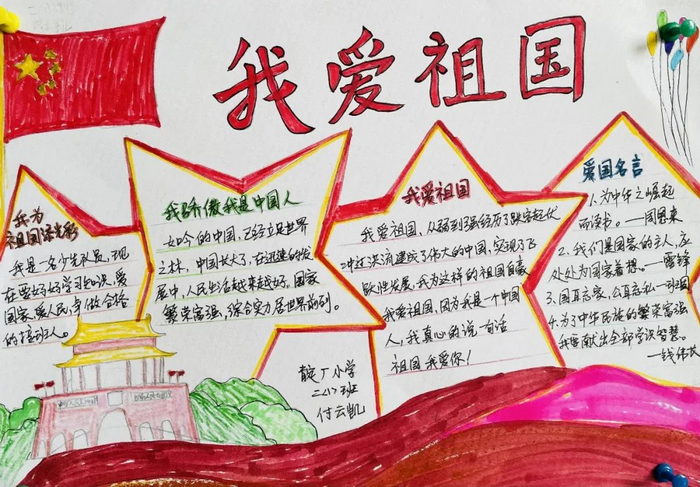 我爱祖国
我为
祖国添光彩
我是一名少先队员，现
在要好好学习知识，爱
国家，爱人民，争做合格
的接班人。
我骄傲我是中国人
如今的中国，已经立足世界
之林，中国长大了，在迅速的发
展中，人民生活越来越好，国家
繁荣富强，综合实力居世界前列。
我爱祖国
我爱祖国，从弱到强经历了跌宕起伏
冲过洪流建成了伟大的中国，实现了飞
跃性发展，我为这样的祖国自豪
我爱祖国，因为我是一个中国
人，我真心的说一句话
祖国 我爱你！
爱国名言
1.为中华之崛起
而读书。——周恩来
2.我们是国家的主人，应
处处为国家着想。——雷锋
3.国耳忘家，公耳忘私
4.为了中华民族的繁荣富强
我要献出全部学识智慧。
——钱伟长
小学
二(2)班
付云凯